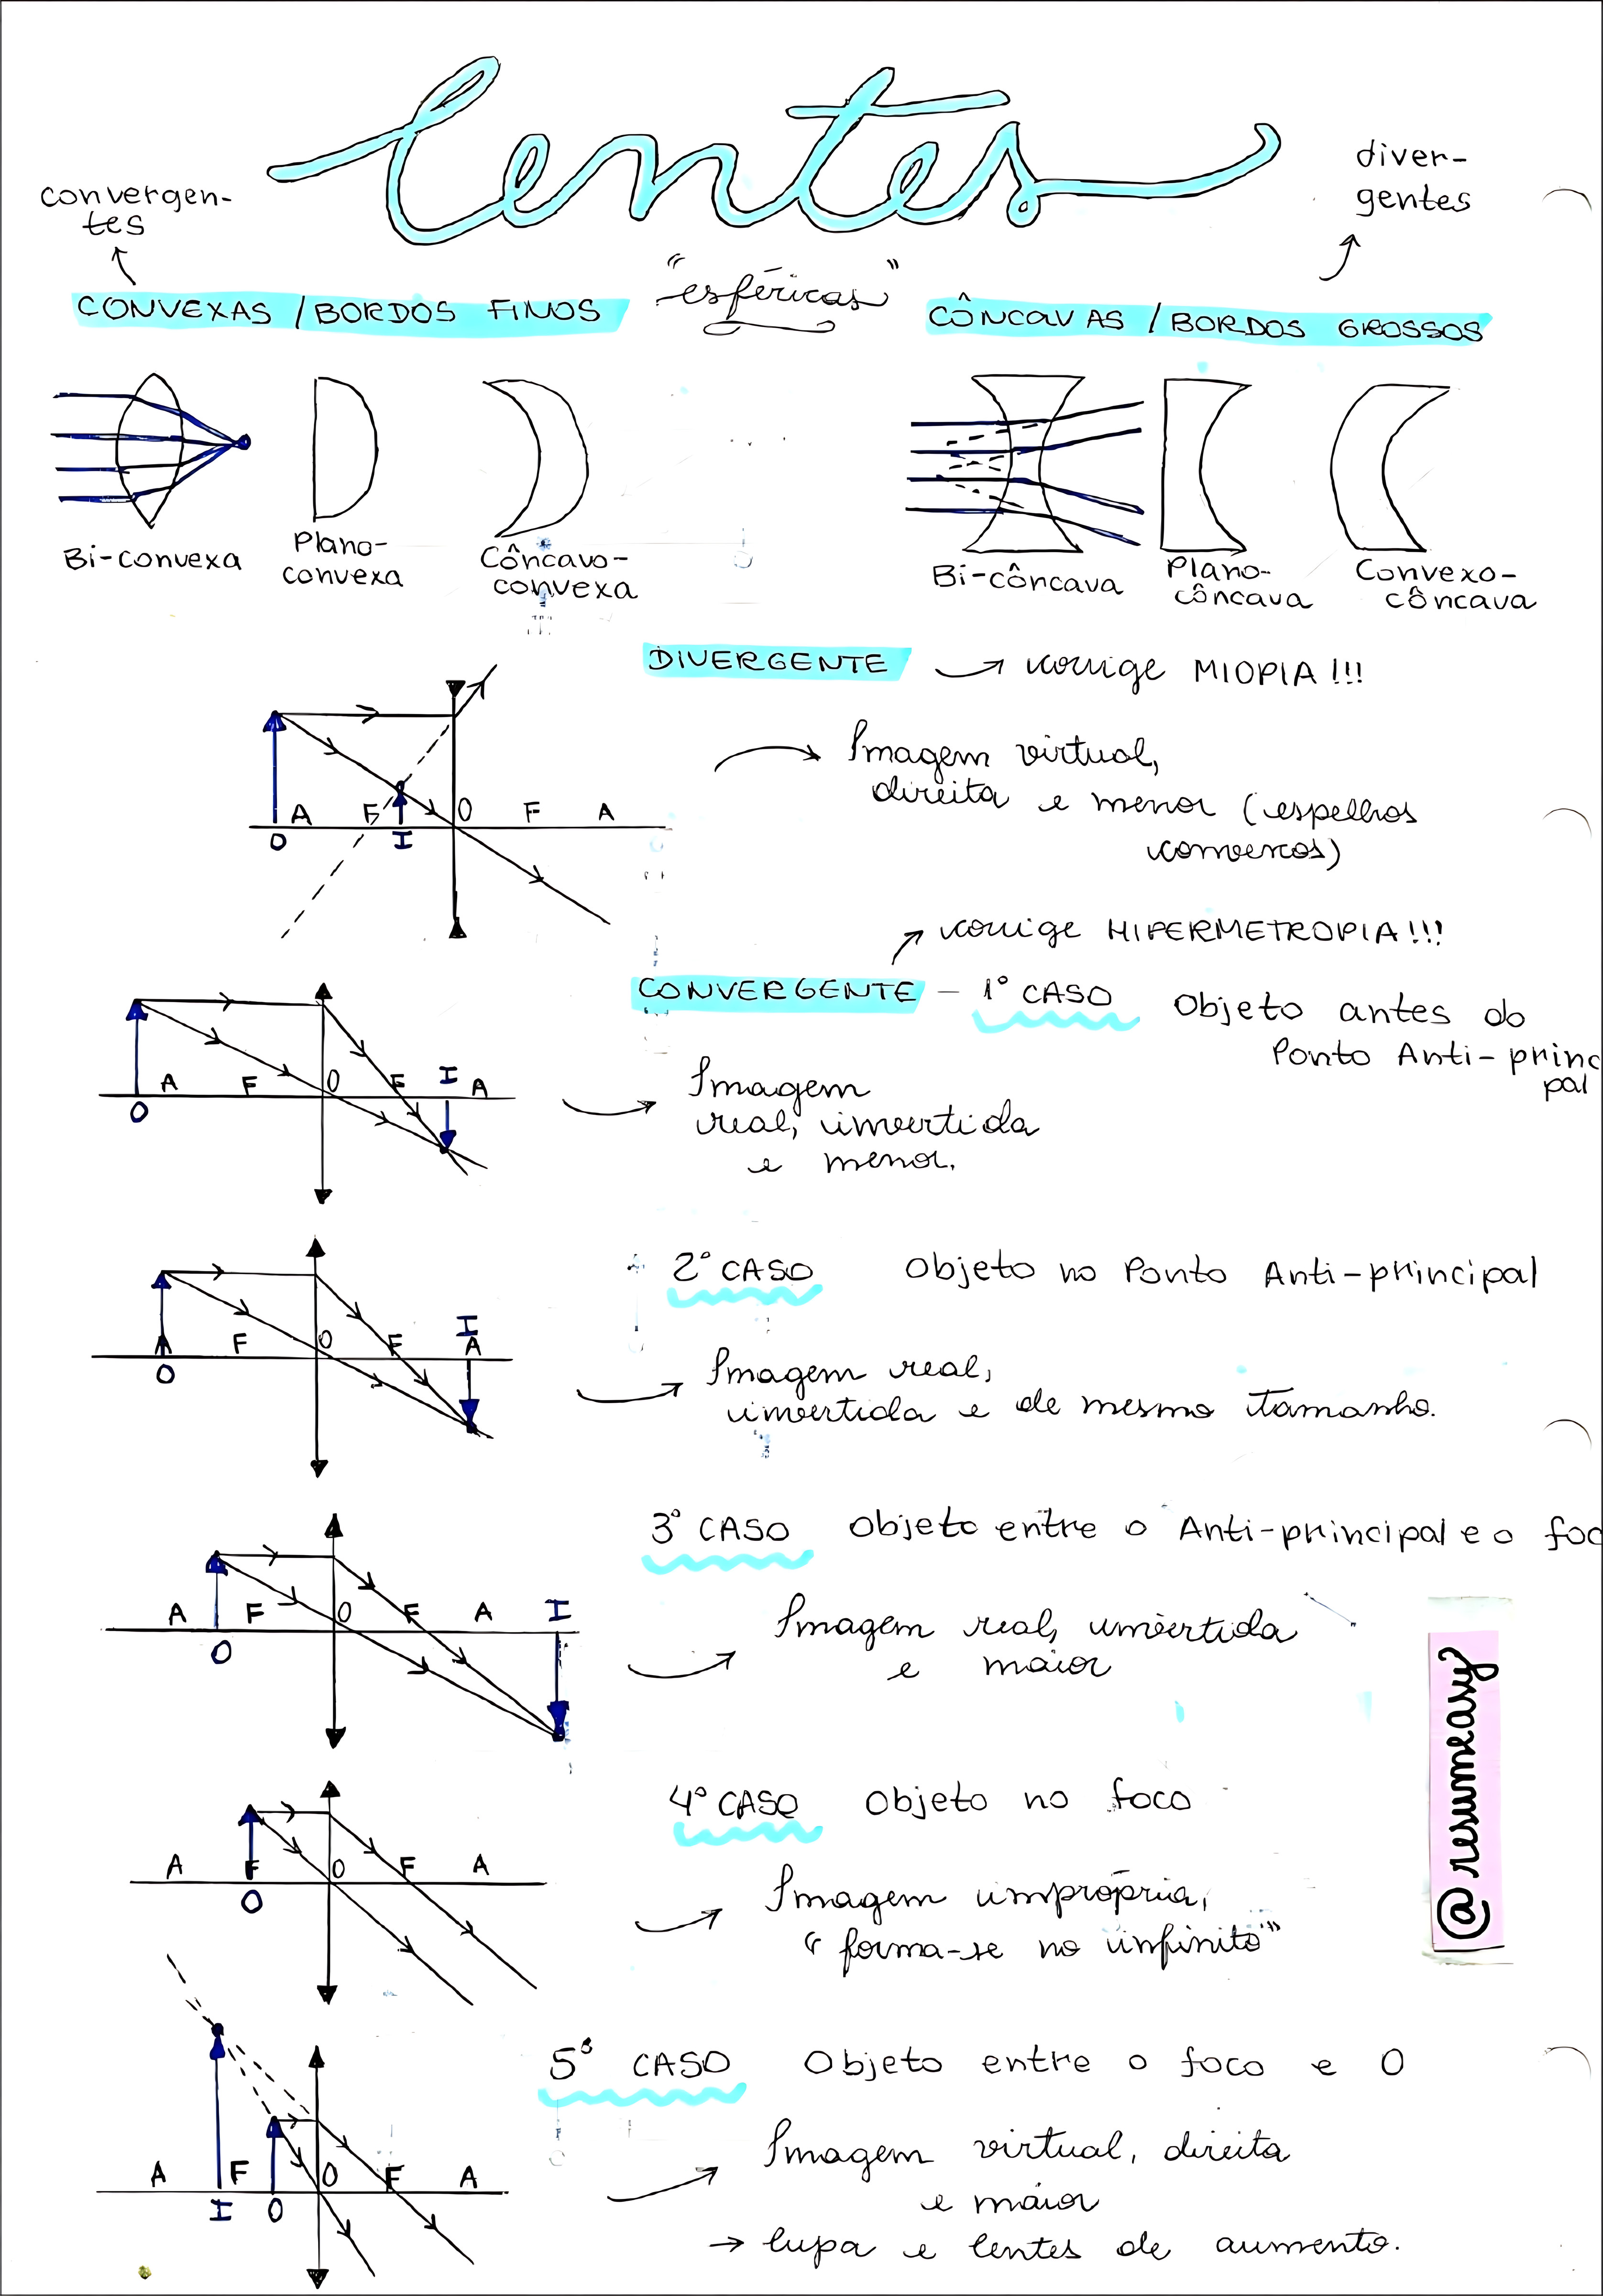 lentes
"esféricas"
convergen-
tes
CONVEXAS / BORDOS FINOS
diver-
gentes
CÔNCAVAS / BORDOS GROSSOS
Bi-convexa
Plano-
convexa
Côncavo-
convexa
Bi-côncava
Plano-
côncava
Convexo-
côncava
DIVERGENTE → corrige MIOPIA!!!
A F I O F A
O
Imagem virtual,
direita e menor (espelhos
convexos)
corrige HIPERMETROPIA!!!
CONVERGENTE - 1º CASO Objeto antes do
Ponto Anti-princ
pal
A F O F I A
O
Imagem
real, invertida
e menor.
2º CASO Objeto no Ponto Anti-principal
I
A F O F A
O
Imagem real,
invertida e de mesmo tamanho.
3º CASO Objeto entre o Anti-principal e o foc
A F O F A I
O
Imagem real, invertida
e maior
4º CASO Objeto no foco
A F O F A
O
Imagem imprópria,
"forma-se no infinito"
5º CASO Objeto entre o foco e O
A F O F A
I O
Imagem virtual, direita
e maior
→ lupa e lentes de aumento.
@resumeasy